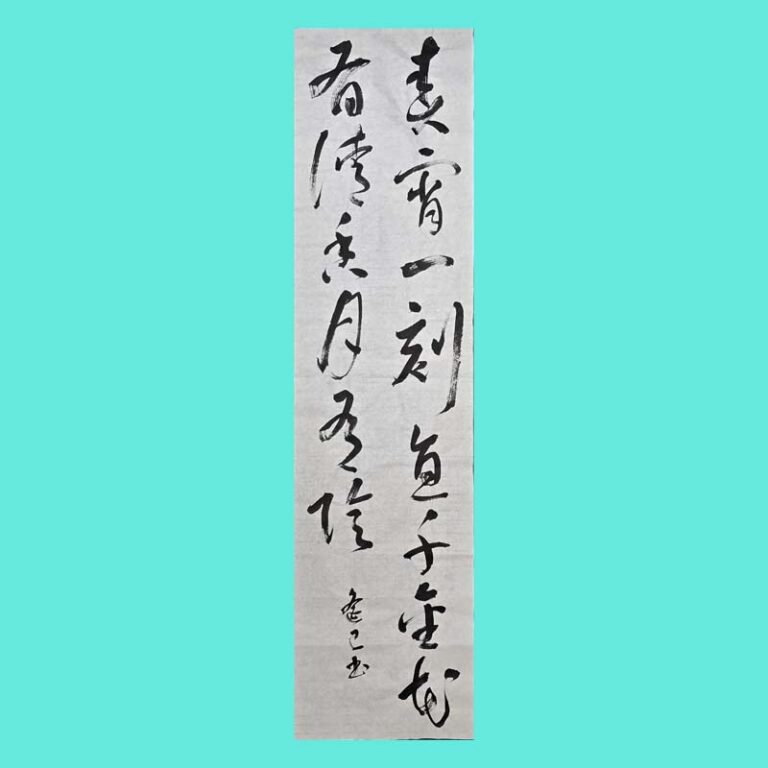 春宵一刻直千金花
有清香月有陰
己書